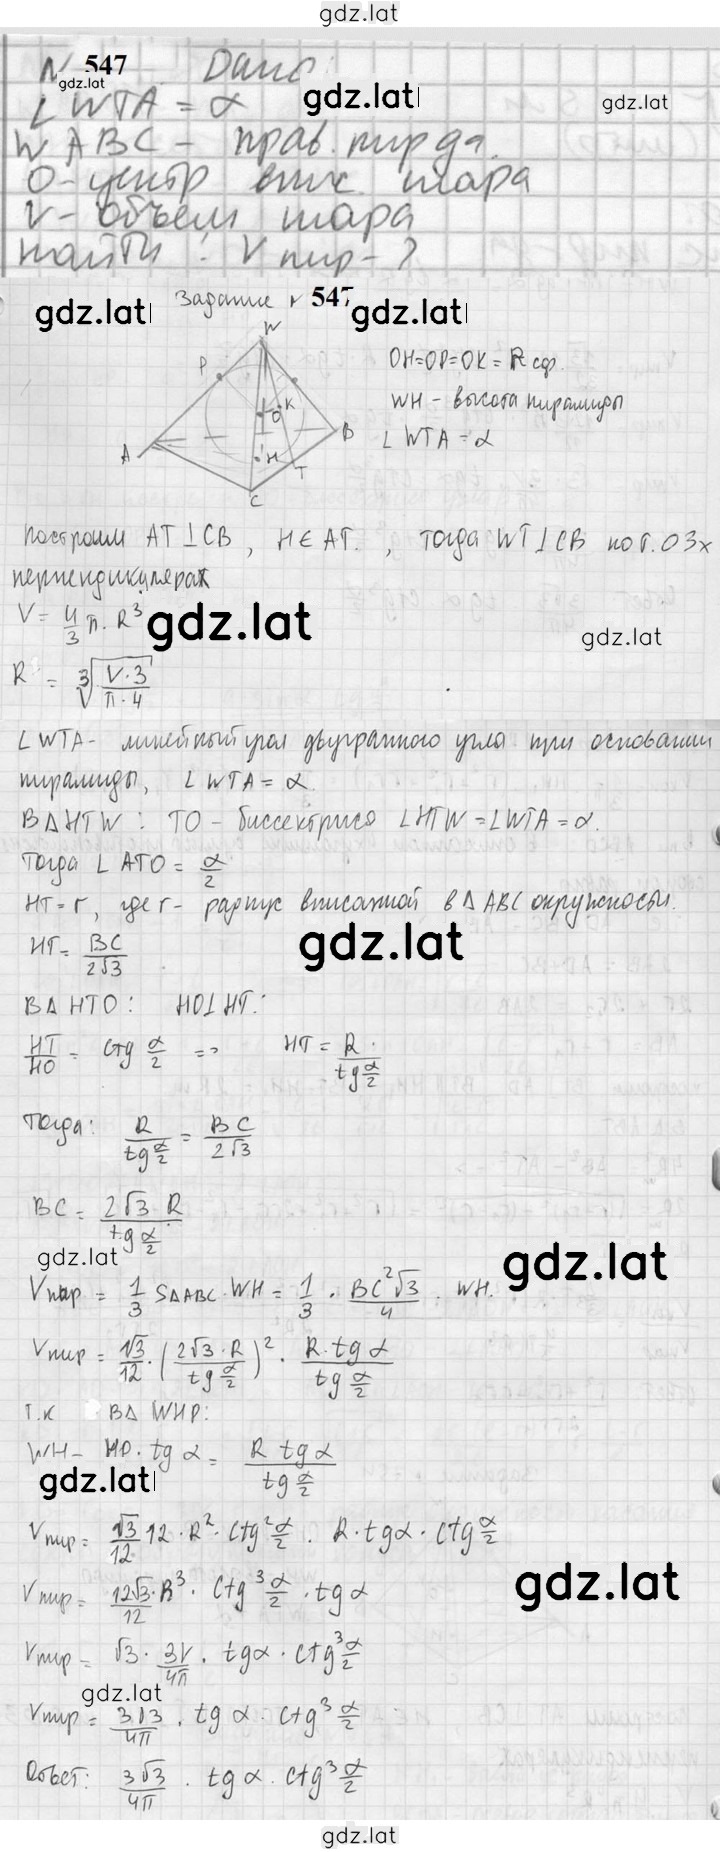 gdz.lat
N 547 Дано:
gdz.lat gdz.lat gdz.lat
∠WTA = α
WABC - прав. пир-да.
O - центр впис. шара
V - объем шара
Найти: V пир - ?
Задание N 547
gdz.lat gdz.lat
W
P
O K
A B
H
T
C
OH=OP=OK=R сф.
WH - высота пирамиды
∠WTA = α
Построим AT⊥CB, H∈AT., тогда WT⊥CB по т. о 3х
перпендикулярах
V = 4/3 π · R³
gdz.lat gdz.lat
R = ∛(V·3/π·4)
∠WTA - линейный угол двугранного угла при основании
пирамиды, ∠WTA = α.
В ΔHTW: TO - биссектриса ∠HTW = ∠WTA = α.
Тогда ∠ATO = α/2
HT = r, где r - радиус вписанной в ΔABC окружности.
gdz.lat
HT = BC/2√3
В ΔHTO: HO⊥HT:
HT/HO = ctg α/2 => HT = R/tg α/2
Тогда: R/tg α/2 = BC/2√3
BC = 2√3·R/tg α/2
gdz.lat gdz.lat
Vпир = 1/3 SΔABC · WH = 1/3 · BC²√3/4 · WH.
Vпир = √3/12 · (2√3·R/tg α/2)² · R·tg α/tg α/2
Т.к В Δ WHP:
WH = HP·tg α = R tg α/tg α/2
gdz.lat
Vпир = √3/12 12·R²·ctg² α/2 · R·tgα·ctg α/2
Vпир = 12√3/12·R³·ctg³ α/2·tgα
gdz.lat
Vпир = √3 · 3V/4π · tgα · ctg³ α/2
gdz.lat
Vпир = 3√3/4π · tgα · ctg³ α/2
Ответ: 3√3/4π · tgα · ctg³ α/2
gdz.lat